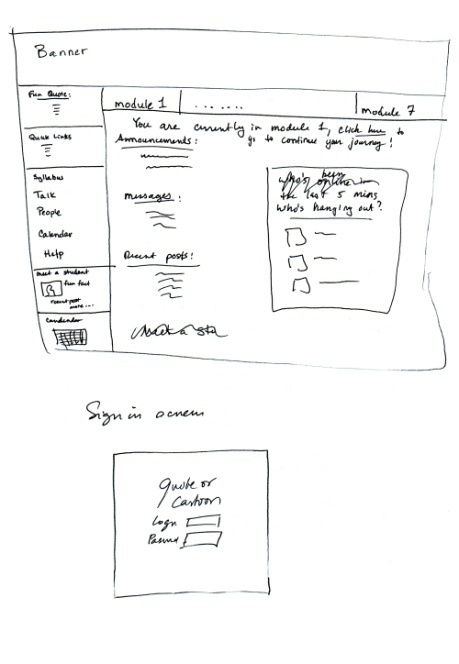 Banner
Fun Quote:
Quick Links
Syllabus
Talk
People
Calendar
Help
meet a student
fun fact
recent post
more....
calendar
module 1
.......
module 7
You are currently in module 1, click here to
go to continue your journey!
Announcements:
messages:
Recent posts:
Meet a stu
who's been
online in
the last 5 mins
Who's hanging out?
Sign in screen
Quote or
Cartoon
Login